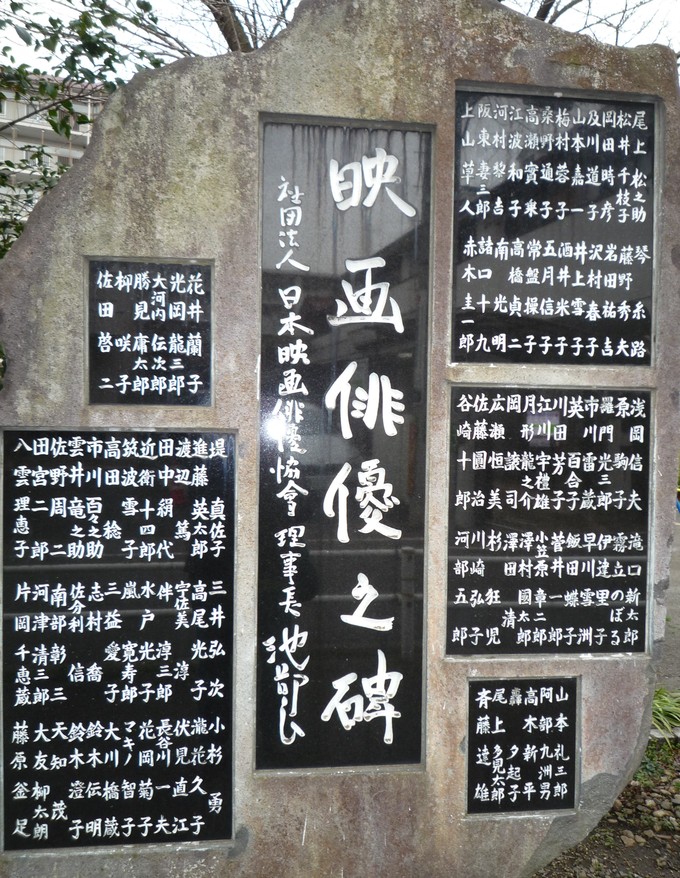 映画俳優之碑
社団法人 日本映画俳優協會 理事長 池部良
尾上松之助
松井千枝子
岡田時彦
及川道子
山本嘉一
梅村蓉子
桑野通子
高瀬實乗
江波和子
河村黎吉
阪東妻三郎
上山草人
琴糸路
藤野秀夫
岩田祐吉
沢村春子
井上雪子
酒井米子
五月信子
常盤操子
高橋貞二
南光明
諸口十九
赤木圭一郎
浅岡信夫
原駒子
羅門光三郎
市川雷蔵
英百合子
川田芳子
江川宇礼雄
月形龍之介
岡譲司
広瀬恒美
佐藤圓治
谷崎十郎
滝口新太郎
霧立のぼる
伊達里子
早川雪洲
飯田蝶子
菅井一郎
小笠原章二郎
澤村國太郎
澤田清
杉狂児
川崎弘子
河部五郎
山本礼三郎
阿部九洲男
高木新平
轟夕起子
尾上多見太郎
斉藤達雄
花井蘭子
光岡龍三郎
大河内伝次郎
勝見庸太郎
柳咲子
佐田啓二
堤真佐子
進藤英太郎
渡辺篤
田中絹代
近衛十四郎
筑波雪子
高田稔
市川百々之助
雲井竜之助
佐野周二
田宮二郎
八雲理恵子
三井弘次
高尾光子
宇佐美淳
伴淳三郎
水戸光子
嵐寛寿郎
三益愛子
志村喬
佐分利信
南部彰三
河津清三郎
片岡千恵蔵
小杉勇
瀧花久子
伏見直江
長谷川一夫
花岡菊子
マキノ智子
大川橋蔵
鈴木伝明
鈴木澄子
天知茂
大友柳太朗
藤原釜足